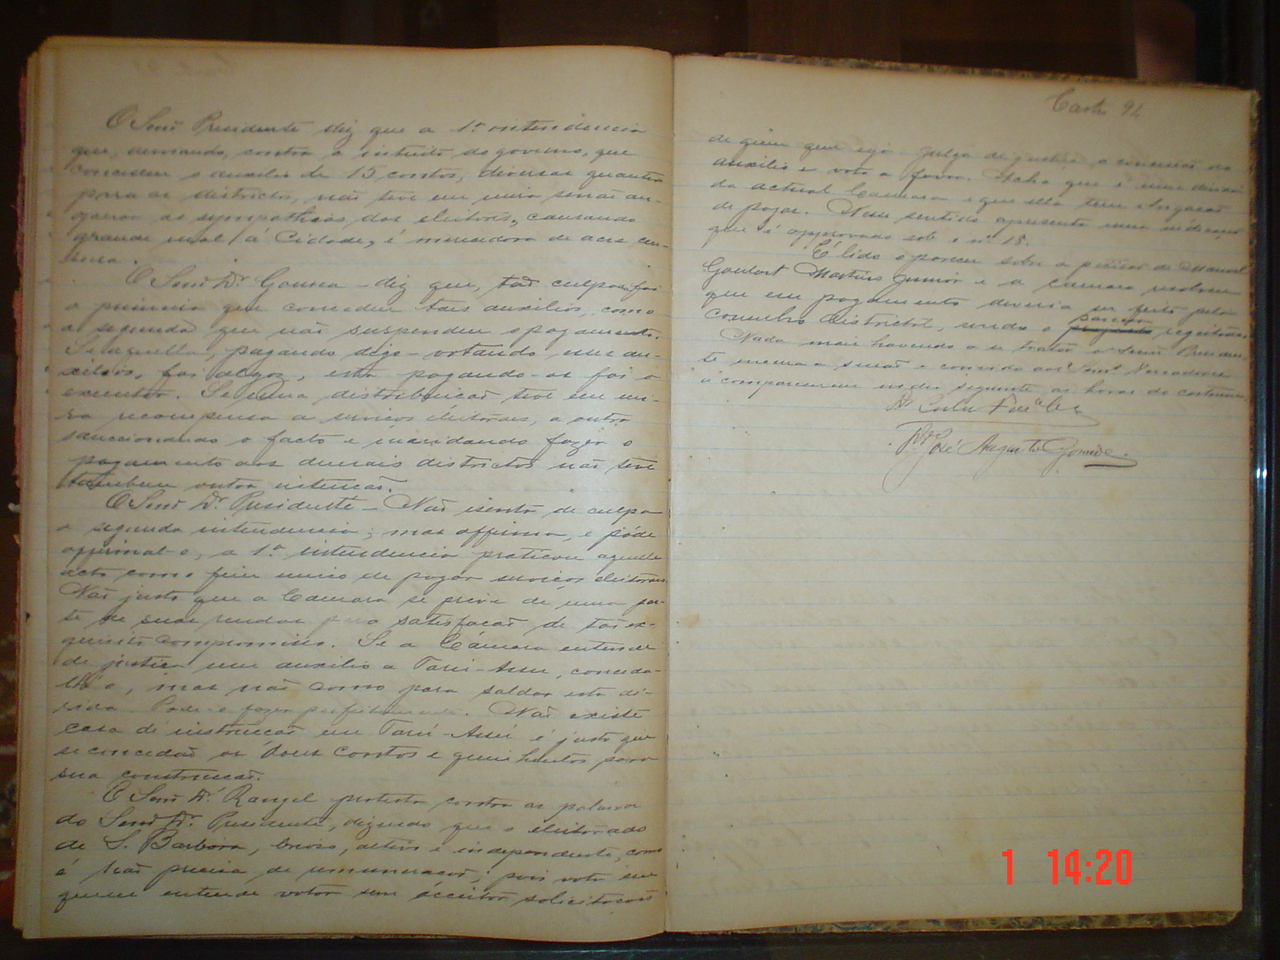 O Senr Presidente diz que a 1ª intendencia
que, deviando, contra o intuito do governo, que
concedeu o auxilio de 15 contos, diversas quantias
para os districtos, não teve em mira senão an-
gariar as sympathias dos eleitores, causando
grande mal á Cidade, é merecedora de acre cen-
sura.
O Senr Dr Gouvea - diz que, tão culpada foi
a primeira que concedeu taes auxilios, como
a segunda que não suspendeu o pagamento.
Se aquella, pagando digo - votando esses au-
xilios, foi algoz, esta pagando-os foi o
executor. Se uma distribuição teve em mi-
ra recompensa a serviços eleitoraes, a outra
sanccionando o facto e mandando fazer o
pagamento aos demais districtos não teve
tambem outra intenção.
O Senr Dr Presidente - Não isenta de culpa
a segunda intendencia; mas affirma, e póde
affirmal-o, a 1ª intendencia praticou aquelle
acto com o fim unico de pagar serviços eleitoraes.
Não justo que a Câmara se prive de uma par-
te de suas rendas para satisfação de tão ex-
quisito compromisso. Se a Câmara entende
de justiça um auxilio a Taru-Assú, conceda-
lh'o, mas não como para saldar esta di-
vida. Pode o fazer perfeitamente. Não existe
casa de instrucção em Tarú-Assú é justo que
se concedão os dous contos e quinhentos para
sua construcção.
O Senr Dr Rangel protesta contra as palavras
do Senr Dr Presidente, dizendo que o eleitorado
de S. Barbara, brioso, altivo e independente, como
é não precisa de remuneração; pois vota em
quem entende votar sem acceitar solicitações
Castro 94
de quem quer que seja. Julga de justiça a concessão do
auxilio e vota a favor. Acha que é uma divida
da actual Camara e que ella tem obrigação
de pagar. Nesse sentido apresenta uma indicação
que é approvada sob o nº 18.
É lido o parecer sobre a petição de Manoel
Goulart Martins Junior e a Camara resolveu
que em pagamento deveria ser feito pelo
Conselho districtal, sendo o parecer registrado.
Nada mais havendo a se tratar o Senr Presiden-
te encerra a sessão e convida aos Senrs Vereadores
a comparecerem no dia seguinte as horas do costume.
José Augusto Gomide
1 14:20